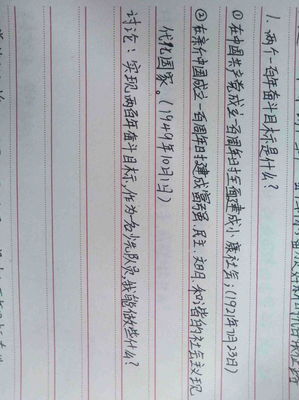 1.两个一百年奋斗目标是什么?
①在中国共产党成立一百周年时全面建成小康社会;(1921年7月23日)
②在新中国成立一百周年时建成富强、民主、文明、和谐的社会主义现
代化国家。(1949年10月1日)
讨论:实现两百年奋斗目标,作为一名少先队员,我能做些什么?